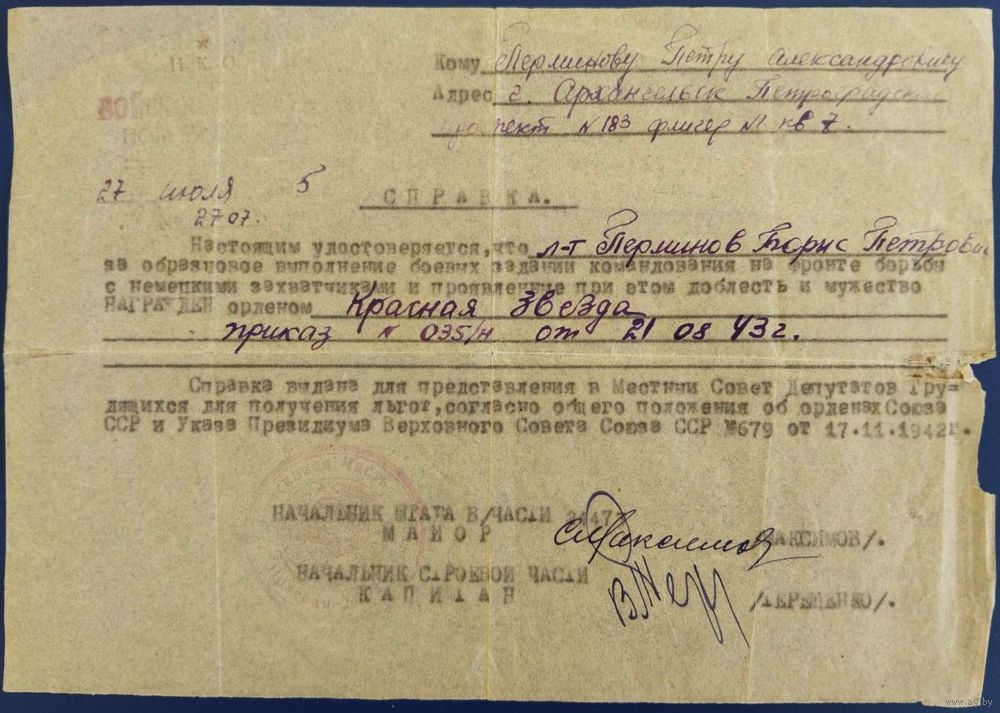 Кому Перминову Петру Александровичу
Адрес г. Архангельск Петроградский
проспект N 183 флигер N1 кв 7.
27 июля 5
2707.
СПРАВКА.
Настоящим удостоверяется, что л-т Перминов Борис Петрович
за образцовое выполнение боевых заданий командования на фронте борьбы
с немецкими захватчиками и проявленные при этом доблесть и мужество
НАГРАЖДЕН орденом Красная Звезда
приказ N 035/н от 21 08 43 г.
Справка выдана для представления в Местный Совет Депутатов Тру-
дящихся для получения льгот, согласно общего положения об орденах Союза
ССР и Указа Президиума Верховного Совета Союза ССР №679 от 17.11.1942г.
НАЧАЛЬНИК ШТАБА В/ЧАСТИ
МАЙОР Максимов /МАКСИМОВ/.
НАЧАЛЬНИК СТРОЕВОЙ ЧАСТИ
КАПИТАН /ТЕРЕЩЕНКО/.
www.ay.by